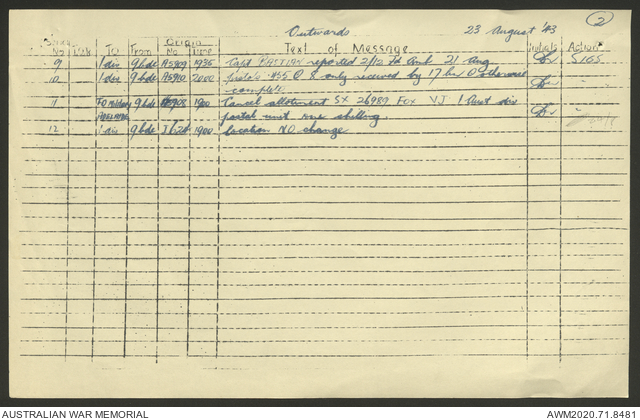 Outwards 23 August '43 2
Serial No Link To From Origin No Time Text of Message Initials Action
9 1 div 9 bde A5909 1935 Capt BASTIAN reported 2/12 Fd Amb 21 Aug SIGS
10 1 div 9 bde A5910 2000 8 only received by 17 otherwise
complete
11 FO Military 9 bde A5908 1900 Cancel allotment SX 26989 Fox VJ 1 Aust div
ADELAIDE postal unit one shilling.
12 1 div 9 bde 1900 location NO change
AUSTRALIAN WAR MEMORIAL AWM2020.71.8481